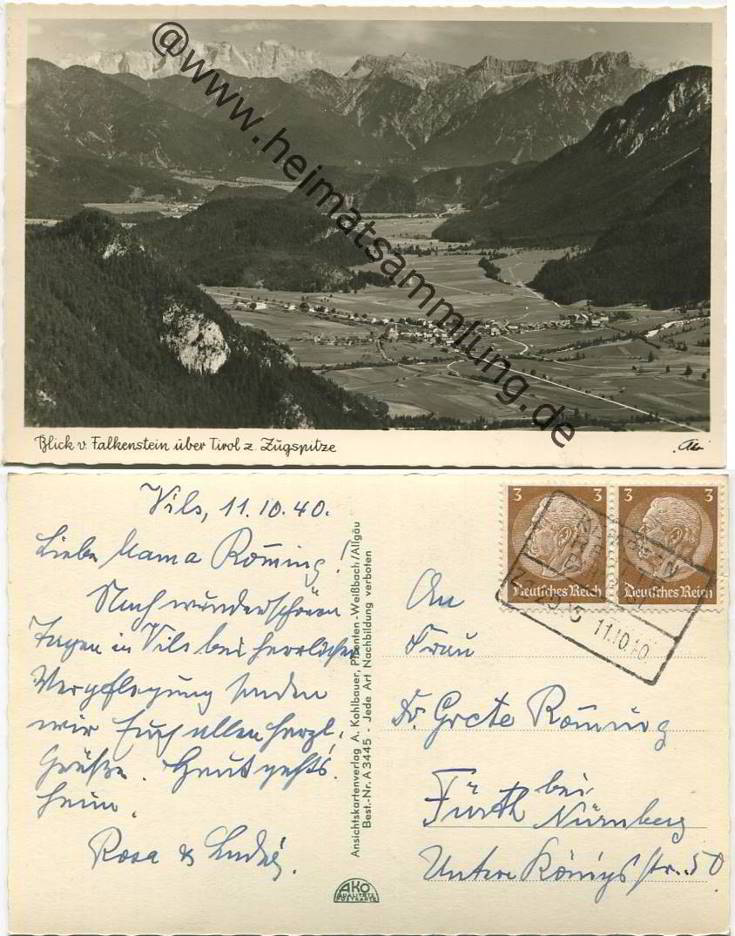 @www.heimatsammlung.de
Blick v. Falkenstein über Tirol z. Zugspitze
Vils, 11.10.40.
Liebe Mama Röming!
Nach wunderschönen
Tagen in Vils bei herrlicher
Verpflegung senden
wir Euch allen herzl.
Grüße. Heut gehts
heim.
Rosa & Ludwig.
Ansichtskartenverlag A. Kohlbauer, Pfronten-Weißbach/Allgäu
Best.-Nr. A 3445 - Jede Art Nachbildung verboten
AKO
QUALITÄTS
POSTKARTE
3 3
Deutsches Reich
3 3
Deutsches Reich
11.10.40
An
Frau
Dr. Grete Röming
Fürth bei Nürnberg
Untere Königstr. 50